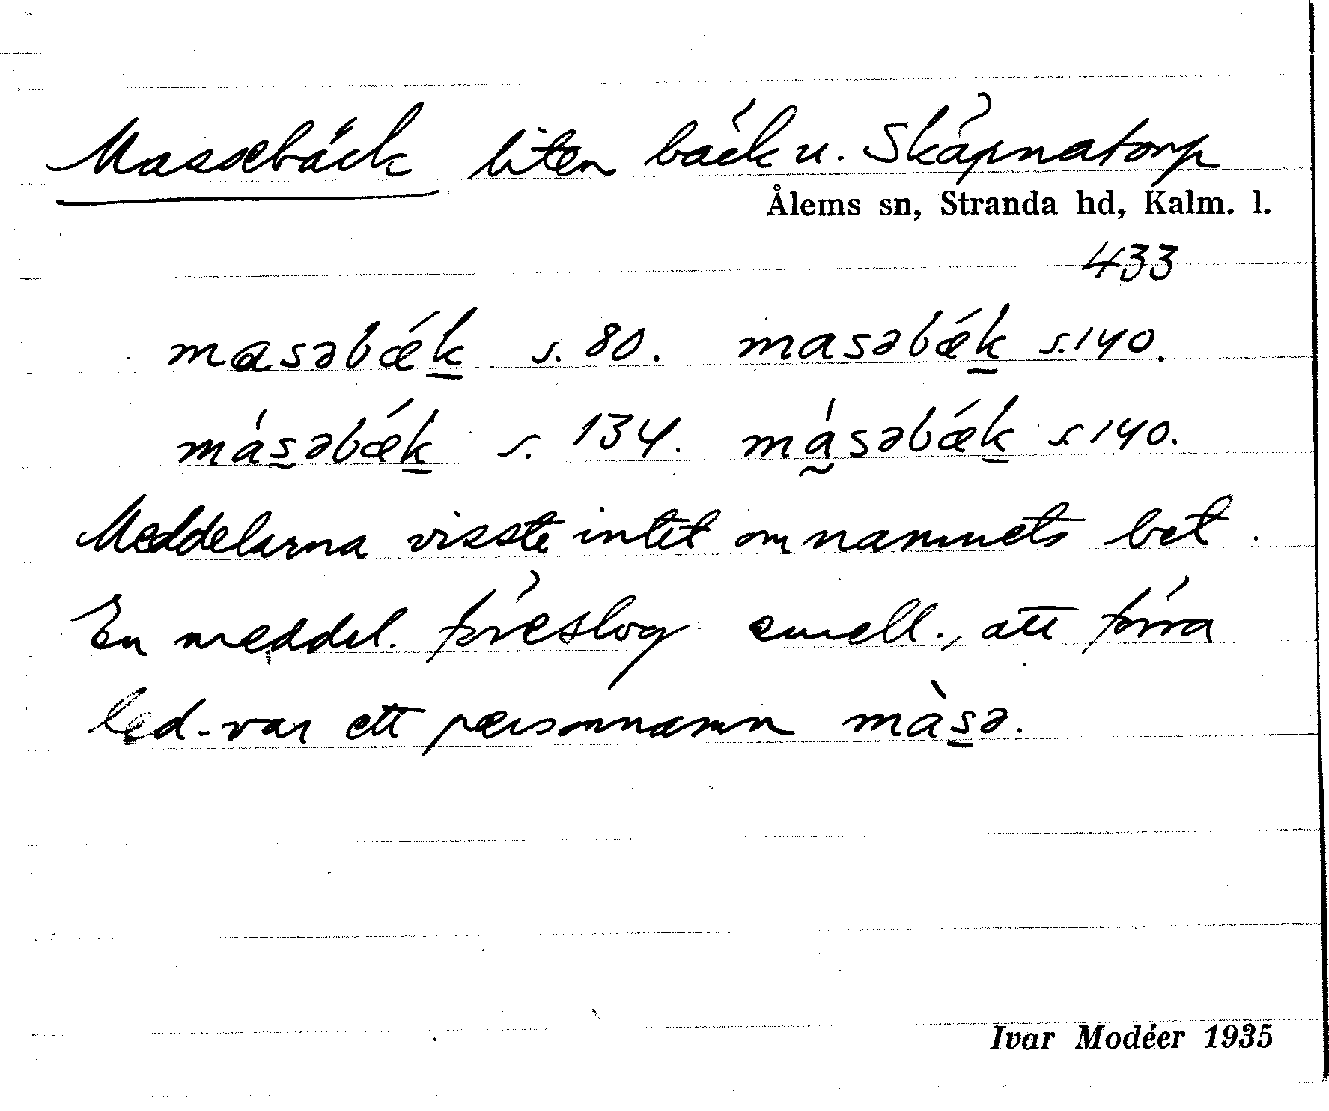 Massebäck liten bäck u. Skäpnatorp
Ålems sn, Stranda hd, Kalm. l.
433
masəbǽk̲ s. 80. masəbǽk̲ s. 140.
más̲əbǽk̲ s. 134. má̰səbǽk̲ s. 140.
Meddelarna visste intet om namnets bet.
En meddel. föreslog emell., att förra
led. var ett personnamn màs̲ə.
Ivar Modéer 1935